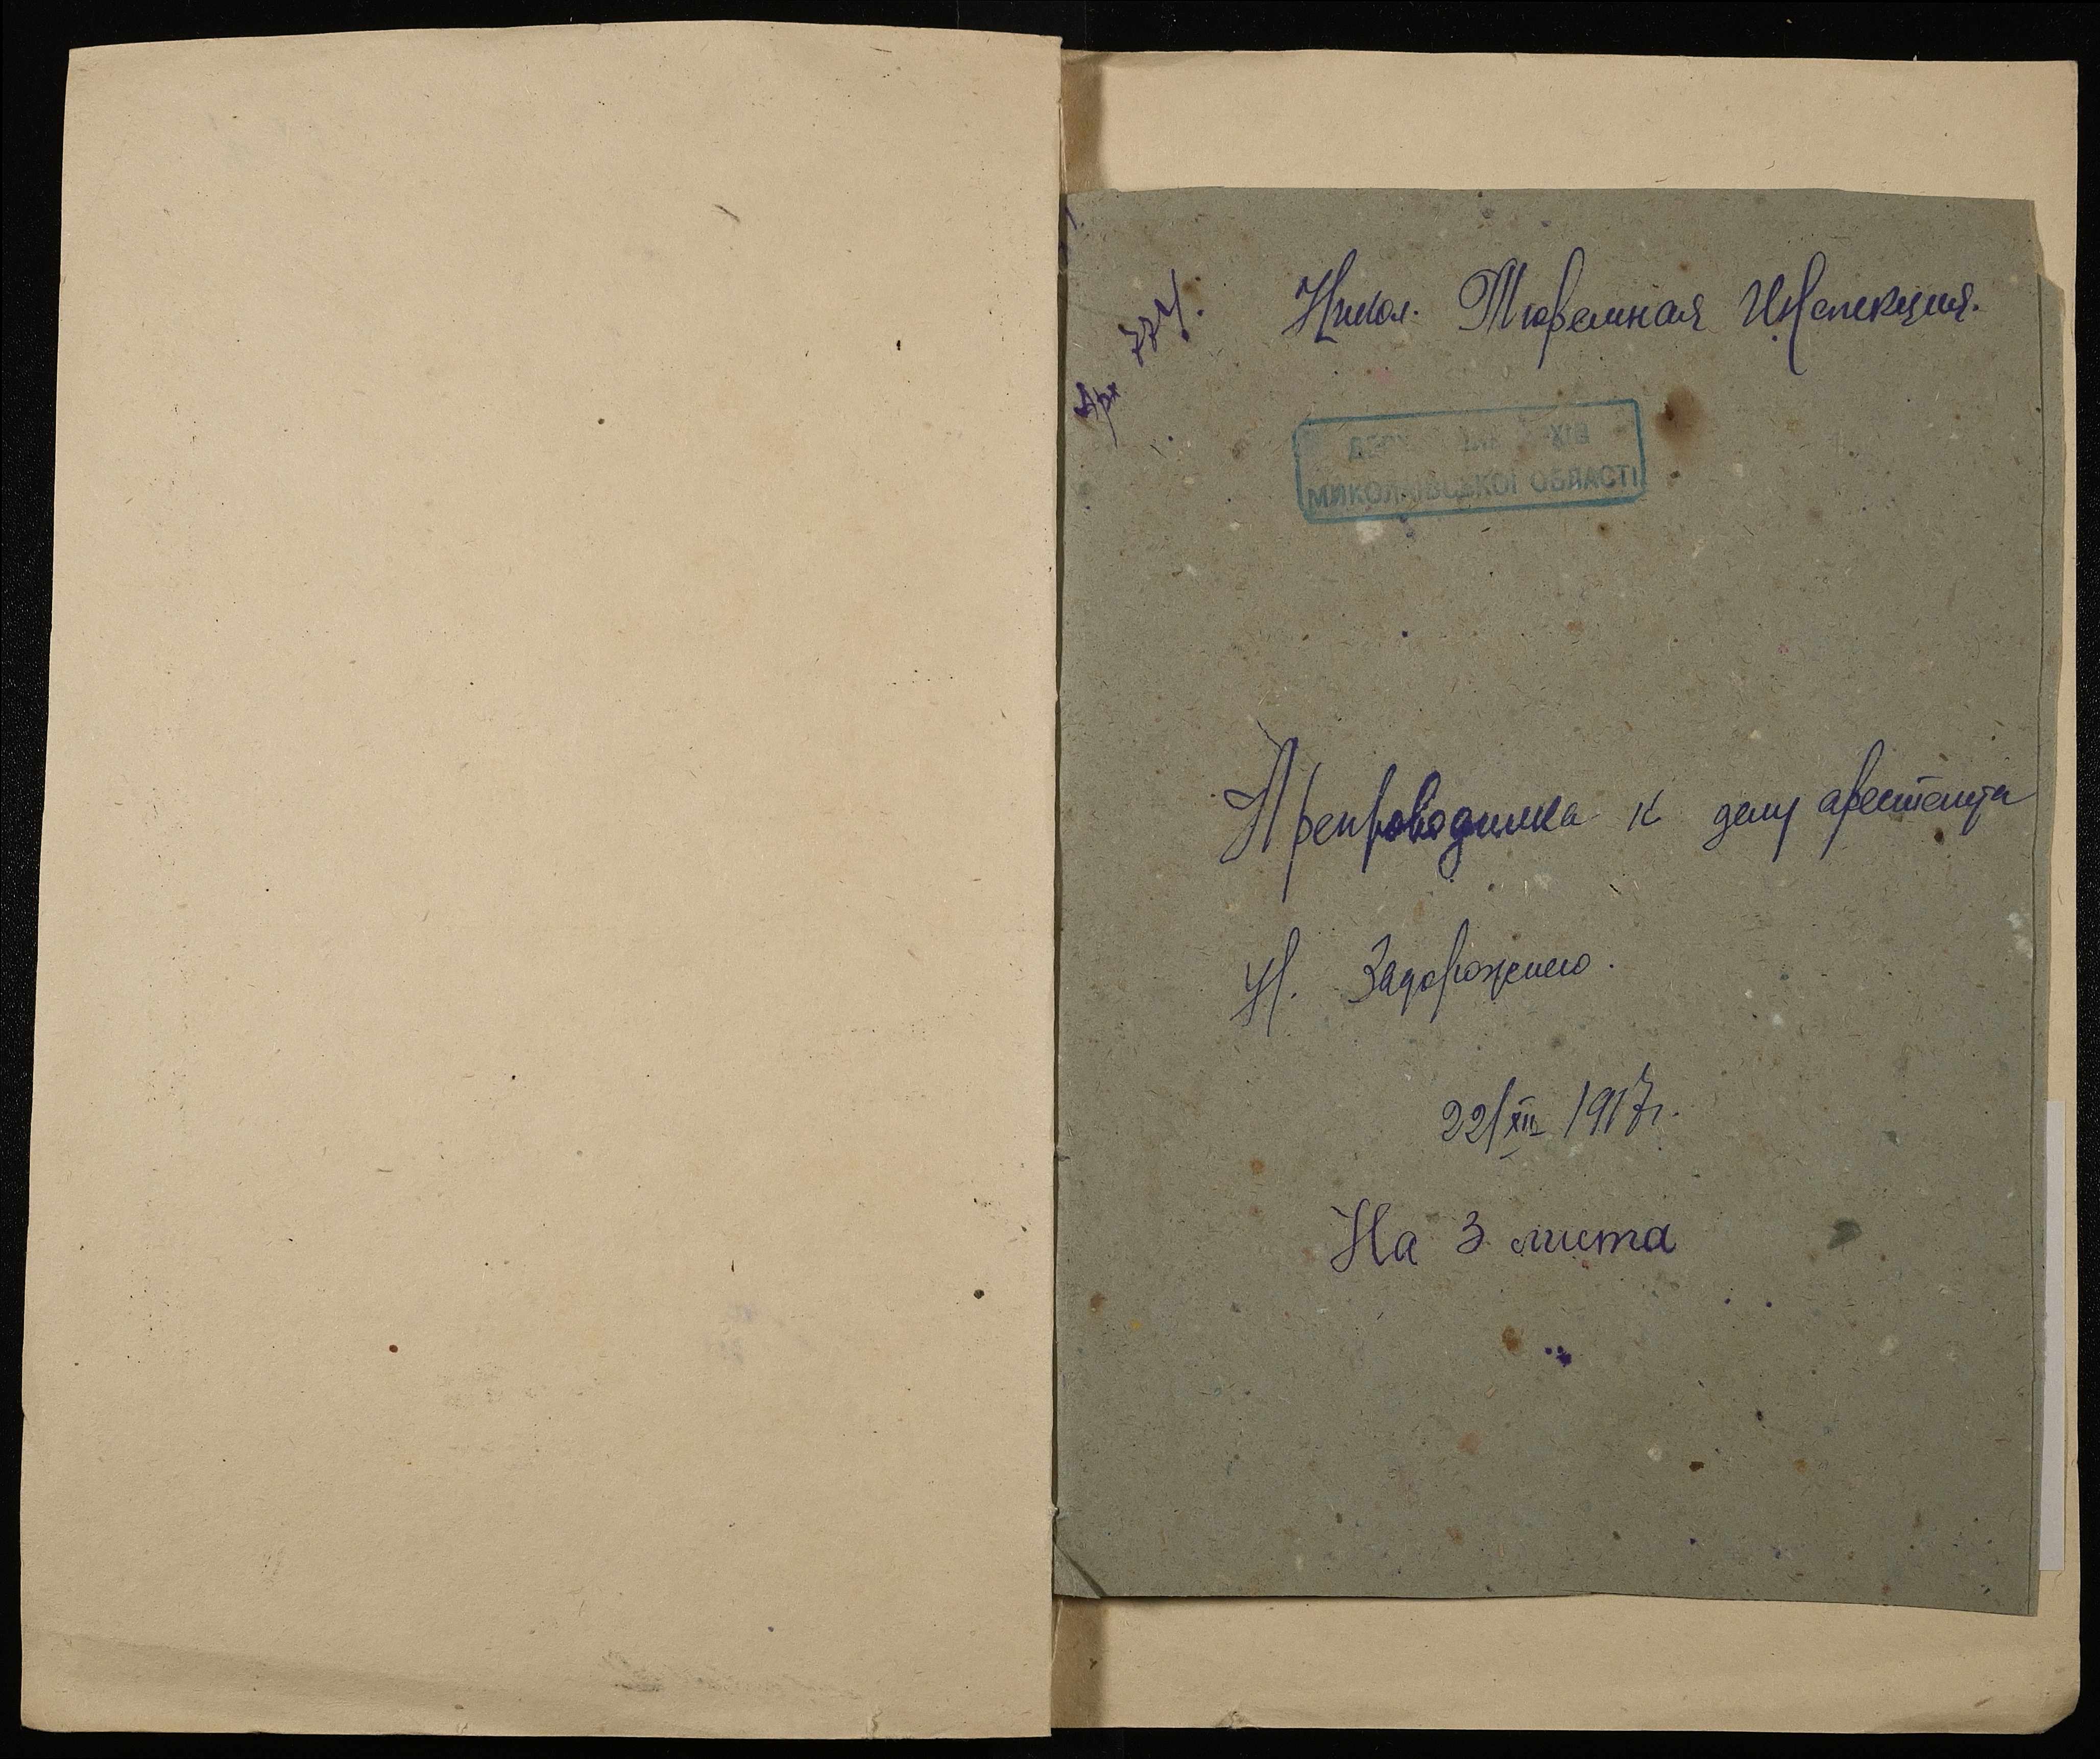 Арх 774.
Никол. Тюремная Инспекция.
ДЕРЖ ХІВ
МИКОЛАЇВСЬКОЇ ОБЛАСТІ
Препроводилка к делу арестанта
И. Задорожнего.
22/XII 1917 г.
На 3 листа